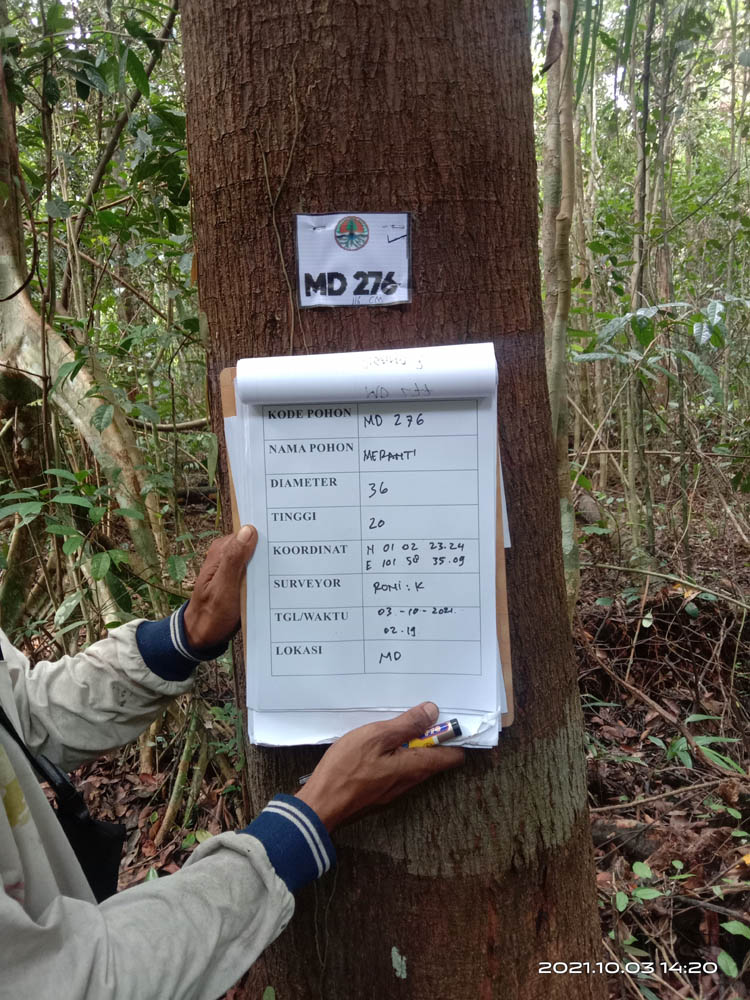 MD 276
116 CM
KODE POHON MD 276
NAMA POHON MERANTI
DIAMETER 36
TINGGI 20
KOORDINAT N 01 02 23.24
E 101 58 35.09
SURVEYOR RONI : K
TGL/WAKTU 03 - 10 - 2021.
02.19
LOKASI MD
2021.10.03 14:20